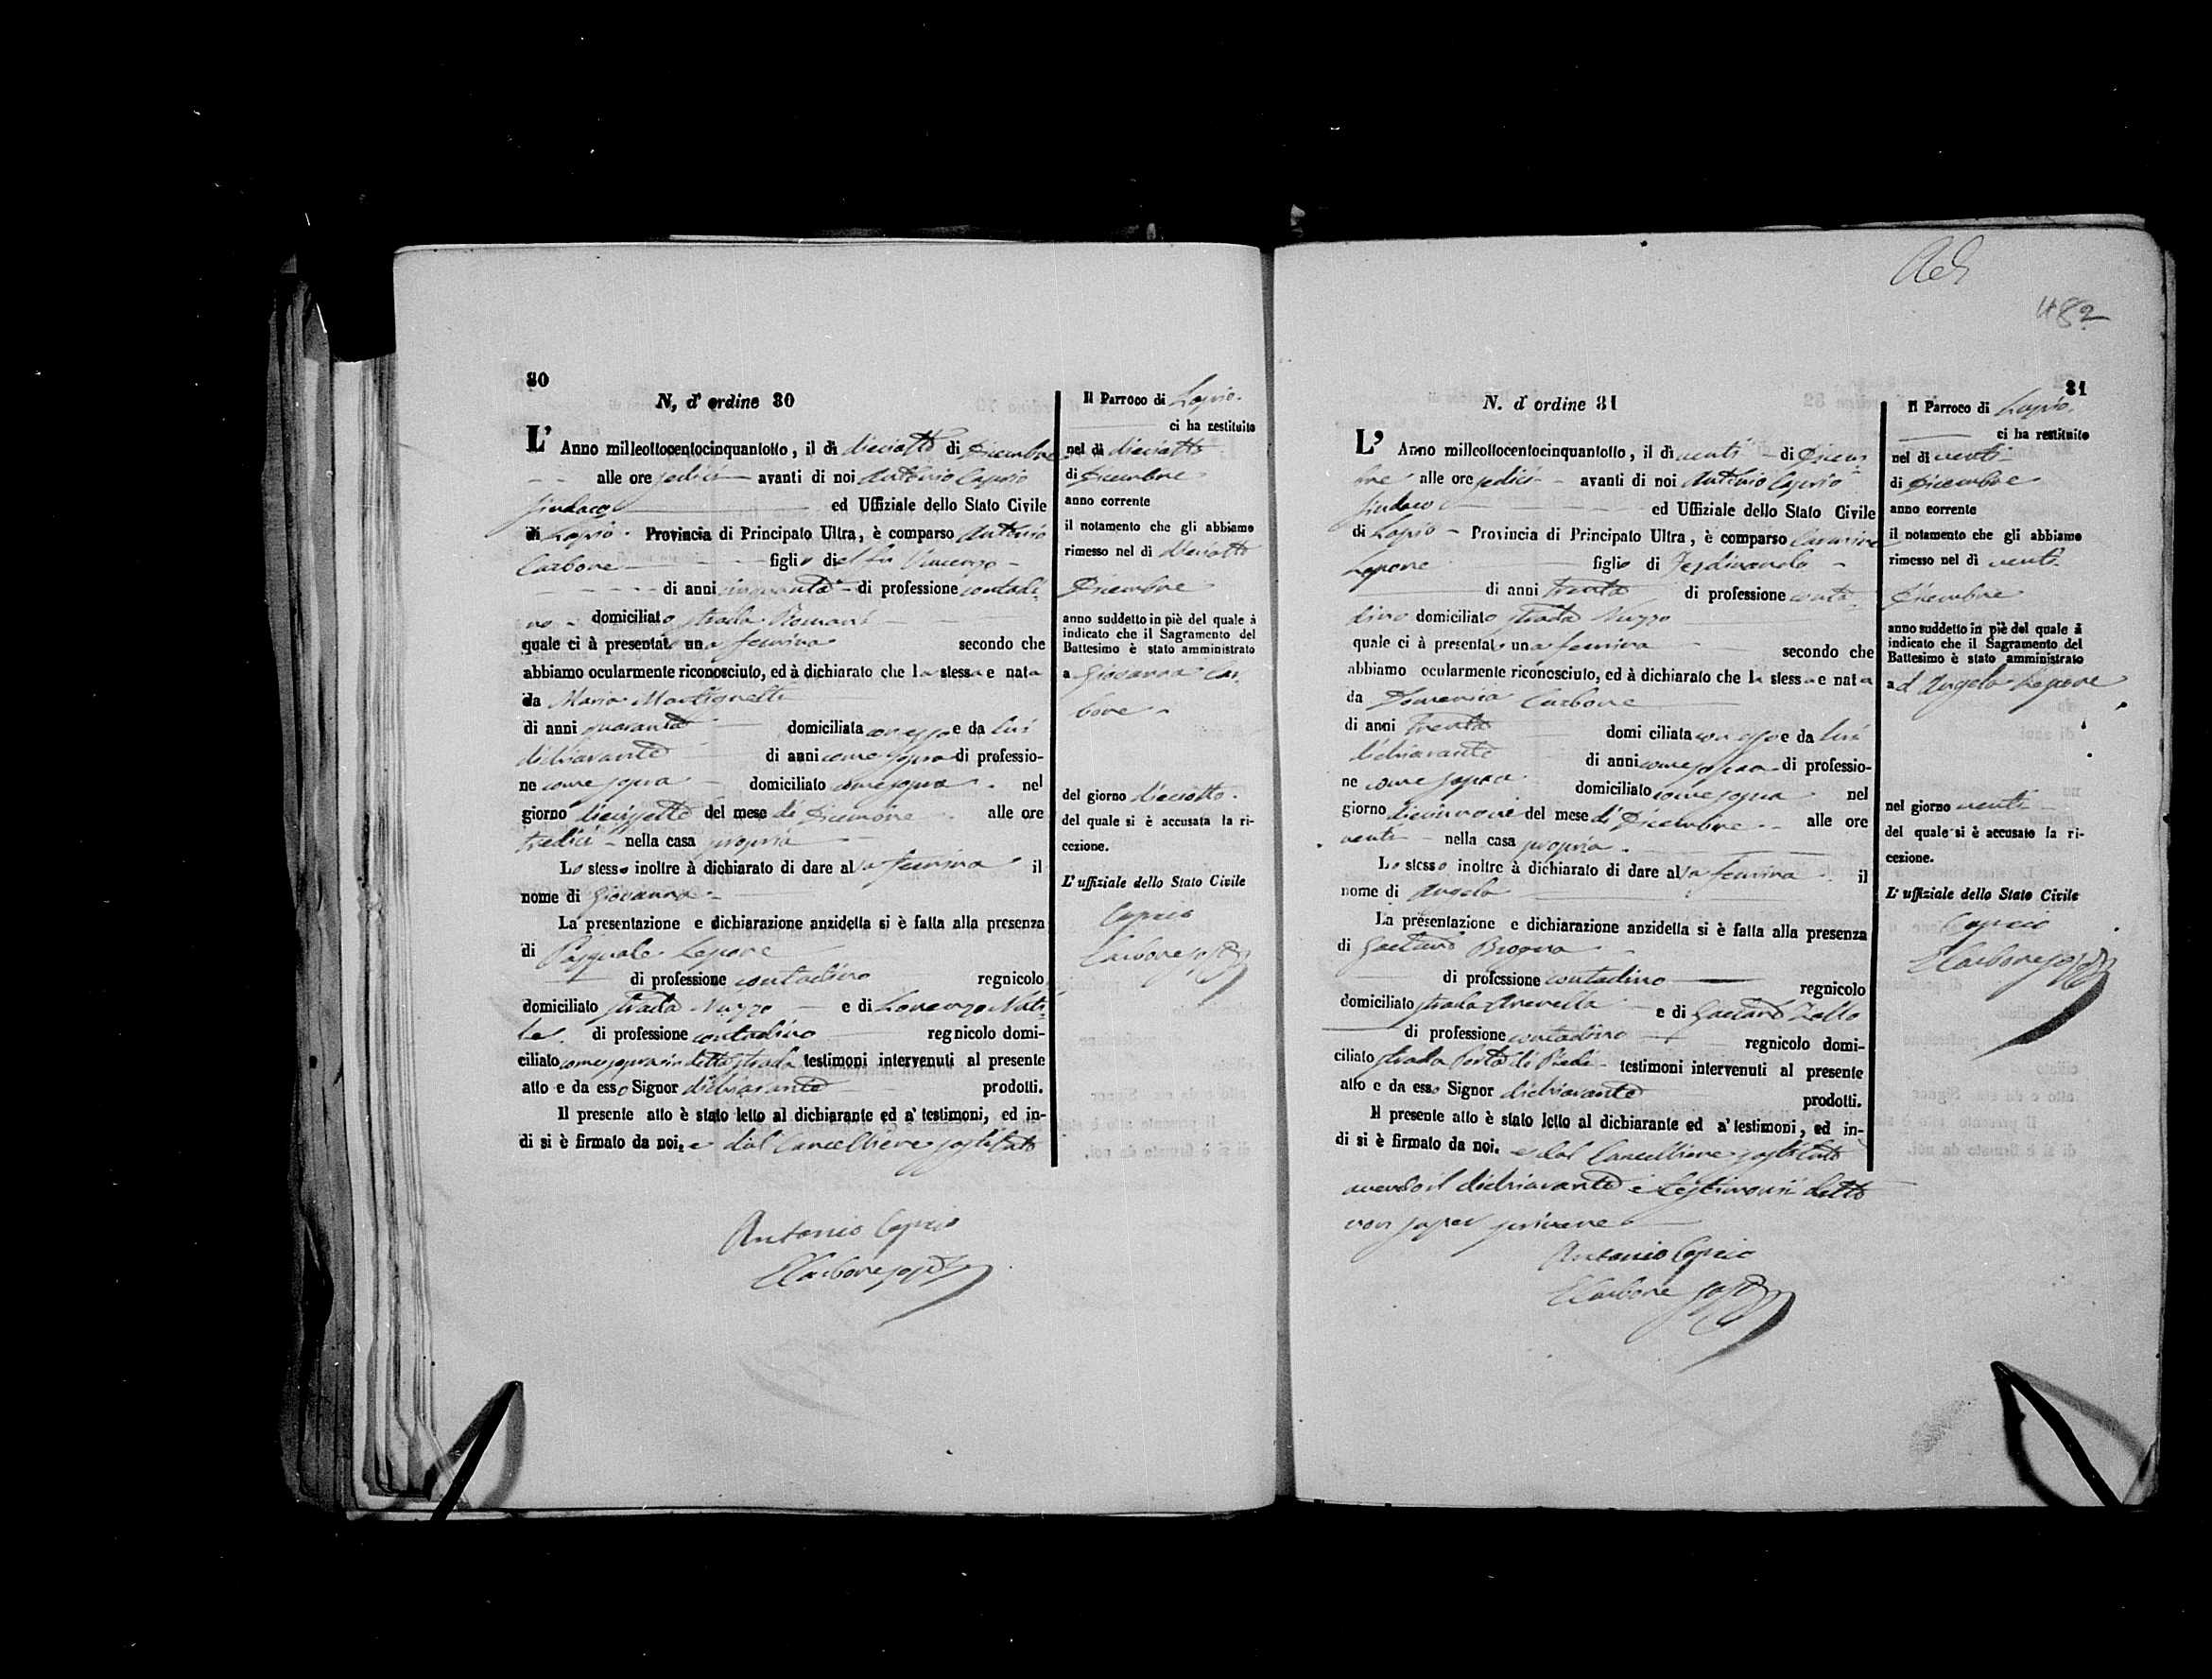 80
N, d' ordine 80
L' Anno milleottocentocinquantotto, il dì dieciotto di Dicembre
alle ore sedici avanti di noi Antonio Caprio
Sindaco ed Uffiziale dello Stato Civile
di Lapio. Provincia di Principato Ultra, è comparso Antonio
Carbone figlio del fu Vincenzo
di anni cinquanta di professione contadi-
no domiciliato strada Romani
quale ci à presentato una femina secondo che
abbiamo ocularmente riconosciuto, ed à dichiarato che la stessa e nata
da Maria Martignetti
di anni quaranta domiciliata con esso e da lui
dichiarante di anni come sopra di professio-
ne come sopra domiciliato come sopra nel
giorno diecissette del mese di Dicembre alle ore
tredici nella casa propria
Lo stesso inoltre à dichiarato di dare alla femina il
nome di Giovanna
La presentazione e dichiarazione anzidetta si è fatta alla presenza
di Pasquale Lepore
di professione contadino regnicolo
domiciliato strada Nuzzo e di Lorenzo
di professione contadino regnicolo domi-
ciliato come sopra in detta strada testimoni intervenuti al presente
atto e da esso Signor dichiarante prodotti.
Il presente atto è stato letto al dichiarante ed a' testimoni, ed in-
di si è firmato da noi, e dal Cancelliere sostituto
Antonio Caprio
Carbone sost
Il Parroco di Lapio.
ci ha restituito
nel dì dieciotto
di Dicembre
anno corrente
il notamento che gli abbiamo
rimesso nel dì dieciotto
Dicembre
anno suddetto in piè del quale à
indicato che il Sagramento del
Battesimo è stato amministrato
a Giovanna Car-
bone
del giorno dieciotto.
del quale si è accusata la ri-
cezione.
L'uffiziale dello Stato Civile
Caprio
Carbone sost
482
81
N. d' ordine 81
L' Anno milleottocentocinquantotto, il dì venti di Dicem
bre alle ore sedici avanti di noi Antonio Caprio
Sindaco ed Uffiziale dello Stato Civile
di Lapio Provincia di Principato Ultra, è comparso Carmine
Lepore figlio di Ferdinando
di anni trenta di professione conta
dino domiciliato strada Nuzzo
quale ci à presentato una femina secondo che
abbiamo ocularmente riconosciuto, ed à dichiarato che la stessa e nata
da Domenica Carbone
di anni trenta domiciliata con esso e da lui
dichiarante di anni come sopra di professio-
ne come sopra domiciliato come sopra nel
giorno diecinnove del mese di Dicembre alle ore
venti nella casa propria.
Lo stesso inoltre à dichiarato di dare alla femina il
nome di Angela
La presentazione e dichiarazione anzidetta si è fatta alla presenza
di Gaetano Brogna
di professione contadino regnicolo
domiciliato strada e di Gaetano Zollo
di professione contadino regnicolo domi-
ciliato strada Porta di testimoni intervenuti al presente
atto e da esso Signor dichiarante prodotti.
Il presente atto è stato letto al dichiarante ed a' testimoni, ed in-
di si è firmato da noi. e dal Cancelliere sostituto
avendo il dichiarante e testimoni detto
non saper scrivere
Antonio Caprio
Carbone sost
Il Parroco di Lapio.
ci ha restituito
nel dì venti
di Dicembre
anno corrente
il notamento che gli abbiamo
rimesso nel dì venti
Dicembre
anno suddetto in piè del quale à
indicato che il Sagramento del
Battesimo è stato amministrato
ad Angela Lepore
nel giorno venti
del quale si è accusato la ri-
cezione.
L' uffiziale dello Stato Civile
Caprio
Carbone sost